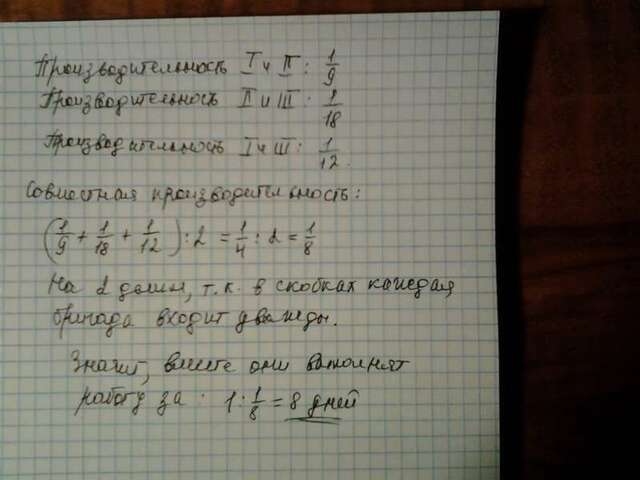 Производительность I и II: 1/9
Производительность II и III: 1/18
Производительность I и III: 1/12.
Совместная производительность:
(1/9 + 1/18 + 1/12) : 2 = 1/4 : 2 = 1/8
На 2 делим, т.к. в скобках каждая
бригада входит дважды.
Значит, вместе они выполнят
работу за: 1 : 1/8 = 8 дней